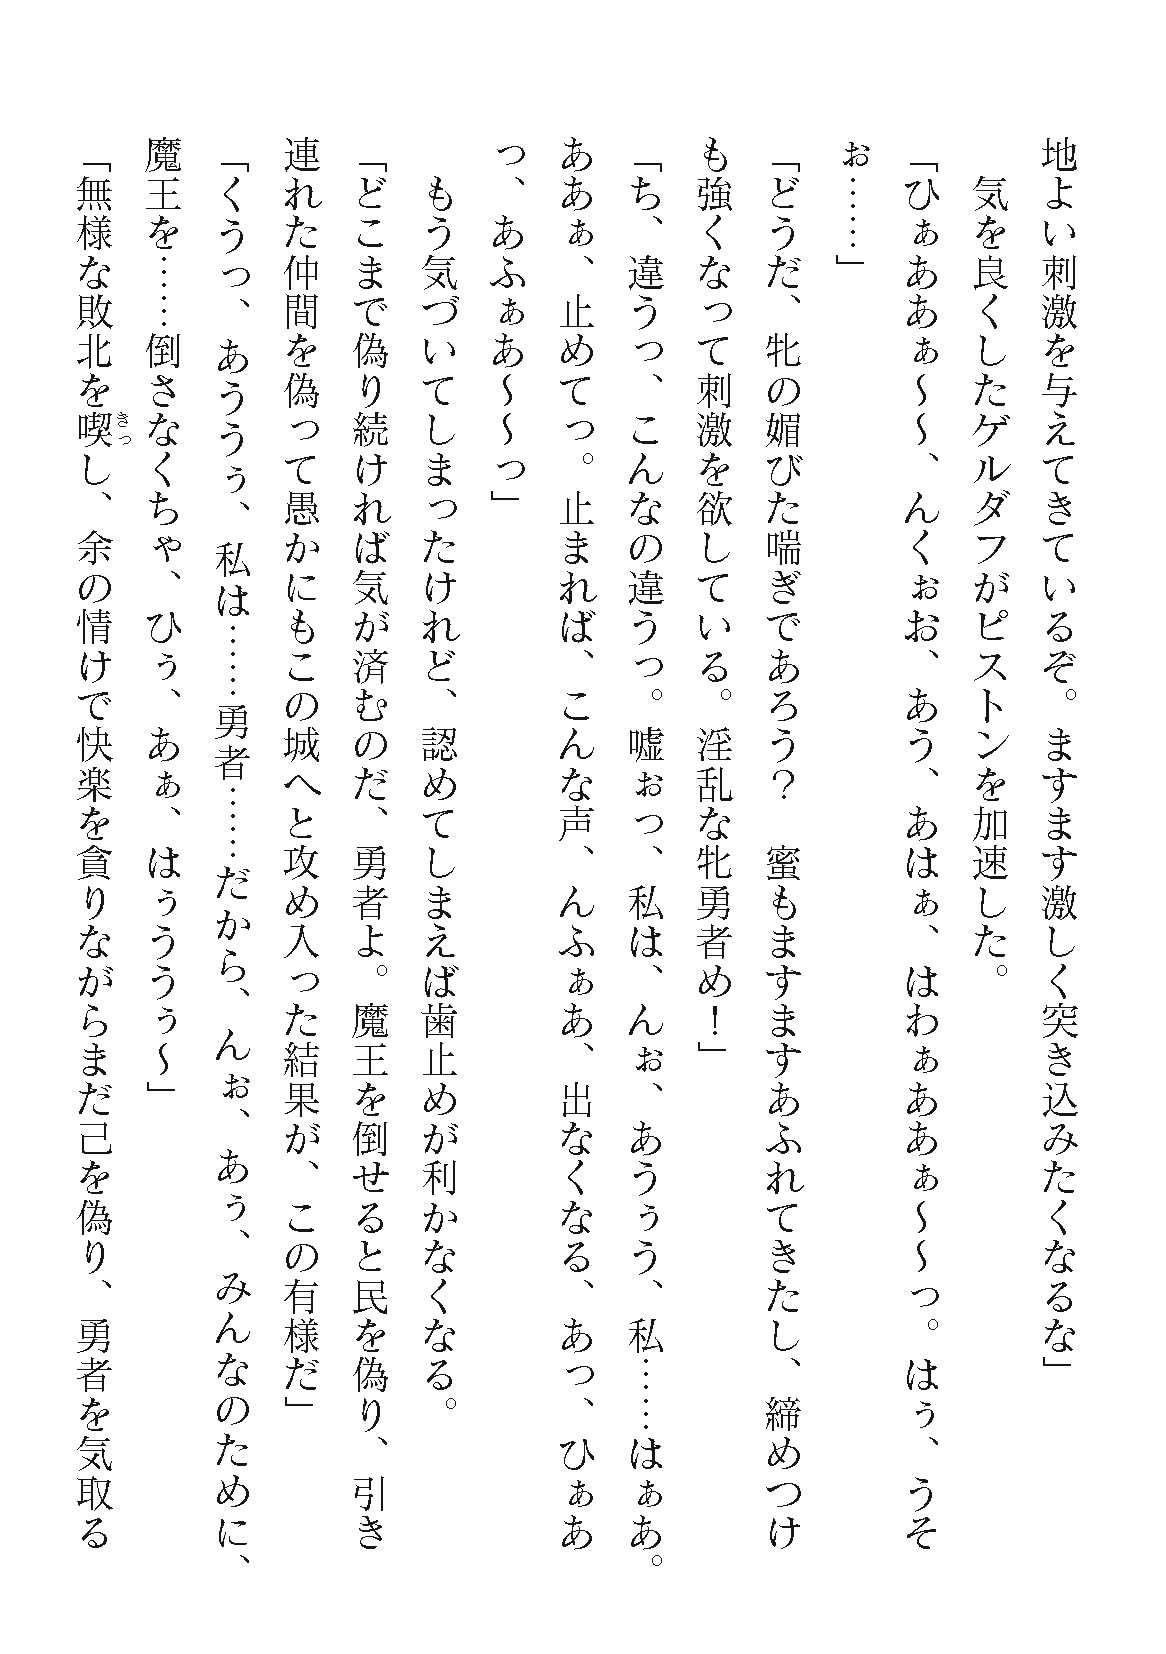 地よい刺激を与えてきているぞ。ますます激しく突き込みたくなるな」
　気を良くしたゲルダフがピストンを加速した。
「ひぁああぁ～～、んくぉお、あう、あはぁ、はわぁああぁ～～っ。はぅ、うそ
ぉ……」
「どうだ、牝の媚びた喘ぎであろう？　蜜もますますあふれてきたし、締めつけ
も強くなって刺激を欲している。淫乱な牝勇者め！」
「ち、違うっ、こんなの違うっ。嘘ぉっ、私は、んぉ、あうぅう、私……はぁあ。
ああぁ、止めてっ。止まれば、こんな声、んふぁあ、出なくなる、あっ、ひぁあ
っ、あふぁあ～～っ」
　もう気づいてしまったけれど、認めてしまえば歯止めが利かなくなる。
「どこまで偽り続ければ気が済むのだ、勇者よ。魔王を倒せると民を偽り、引き
連れた仲間を偽って愚かにもこの城へと攻め入った結果が、この有様だ」
「くうっ、あううぅ、私は……勇者……だから、んぉ、あぅ、みんなのために、
魔王を……倒さなくちゃ、ひぅ、あぁ、はぅううぅ～」
「無様な敗北を喫きっし、余の情けで快楽を貪りながらまだ己を偽り、勇者を気取る